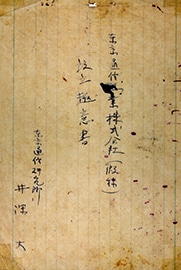 東京通信工業株式会社(仮称)
設立趣意書
東京通信研究所
井深 大